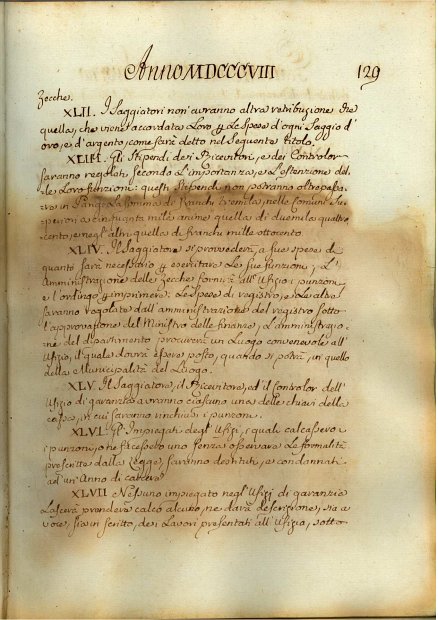 Anno MDCCCVIII 129
Zecche.
XLII. I Saggiatori non avranno altra retribuzione che
quella, che viene accordata Loro p Le Spese d'ogni Saggio d'
oro, e d'argento, come sarà detto nel Seguente titolo.
XLIII. Gli Stipendi dei Ricevitori, e dei Controlor
saranno regolati Secondo L'importanza, e L'estenzione del-
le Loro funzioni: questi Stipendi non potranno oltrepassa-
re in Parigi La somma di franchi tremila, nelle Comuni Su-
periori a cinquanta mila anime quella di duemila quattro
cento, e negl'altri quella di franchi mille ottocento.
XLIV. Il Saggiatore si provvederà, a sue spese di
quanto sarà necessario p esercitare Le sue funzioni, L'
Amministrazione delle Zecche fornirà all'Ufizio i punzoni,
e l'ordingo p imprimere: Le Spese di registro, e Le altre
saranno regolate dall'amministrazione del registro sotto
l'approvazione del Ministro delle finanze, L'amministrazio-
ne del dipartimento procurerà un Luogo convenevole all'
Ufizio, il quale dovrà essere posto, quando si potrà, in quello
della Municipalità del Luogo.
XLV. Il Saggiatore, il Ricevitore, ed il Controlor dell'
Ufizio di garanzia avranno ciascuno una delle chiavi della
cassa, in cui saranno rinchiusi i punzoni.
XLVI. Gl'Impiegati degl'Ufizi, i quali calcassero
i punzoni, o ne facessero uno senza osservare Le formalità
prescritte dalla Legge, saranno destituiti, e condannati
ad un'Anno di carcere
XLVII Nessuno impiegato negl'Ufizi di garanzia
Lascerà prendere calco alcuno, ne darà descrizione, sia a
voce, sia in scritto, dei Lavori presentati all'Ufizio, sotto